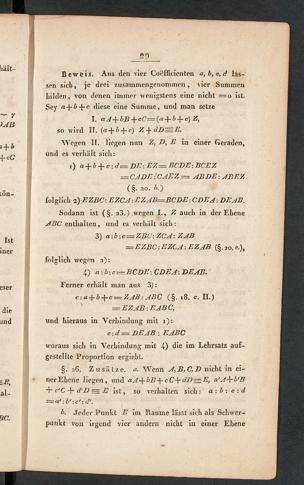 29
Beweis. Aus den vier Coëfficienten a, b, c, d las-
sen sich, je drei zusammengenommen, vier Summen
bilden, von denen immer wenigstens eine nicht =0 ist.
Sey a+b+c diese eine Summe, und man setze
I. aA+bB+cC=(a+b+c) Z,
so wird II. (a+b+c) Z+dD≡E.
Wegen II. liegen nun Z, D, E in einer Geraden,
und es verhält sich:
1) a+b+c:d=DE:EZ=BCDE:BCEZ
=CADE:CAEZ=ABDE:ABEZ
(§. 20. b.)
folglich 2) EZBC:EZCA:EZAB=BCDE:CDEA:DEAB.
Sodann ist (§. 23.) wegen I., Z auch in der Ebene
ABC enthalten, und es verhalten sich:
3) a:b:c=ZBC:ZCA:ZAB
=EZBC:EZCA:EZAB (§. 20. c.),
folglich wegen 2):
4) a:b:c=BCDE:CDEA:DEAB.
Ferner erhält man aus 3):
c:a+b+c=ZAB:ABC (§. 18. c. II.)
=EZAB:EABC,
und hieraus in Verbindung mit 1):
c:d=DEAB:EABC
woraus sich in Verbindung mit 4) die im Lehrsatz auf-
gestellte Proportion ergiebt.
§. 26. Zusätze. a. Wenn A, B, C, D nicht in ei-
ner Ebene liegen, und aA+bB+cC+dD≡E, a'A+b'B
+c'C+d'D≡E ist, so verhalten sich: a:b:c:d
=a':b':c':d'.
b. Jeder Punkt E im Raume lässt sich als Schwer-
punkt von irgend vier andern nicht in einer Ebene